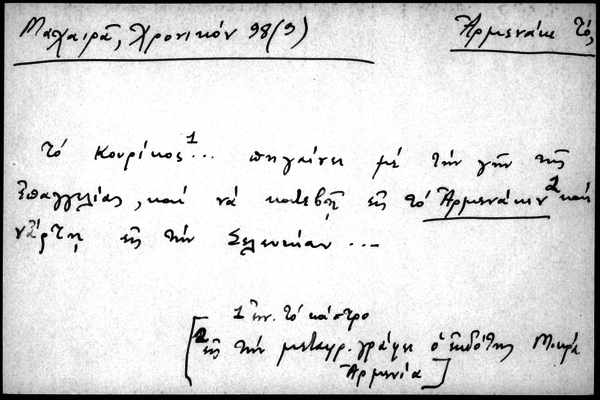 Μαχαιρᾶ, Χρονικόν 98(9)
Ἀρμενάκι τό,
τό Κουρίκος¹... πηγαίνει μέ τήν γῆν τῆς
Ἐπαγγελίας, καί νά κατεβῇ εἰς τό Ἀρμενάκιν² καί
νἄρτῃ εἰς τήν Σελευκίαν ...
[1 ἐν. τό κάστρο
2 εἰς τήν μεταφρ. γράφει ὁ ἐκδότης Μικρά
Ἀρμενία]